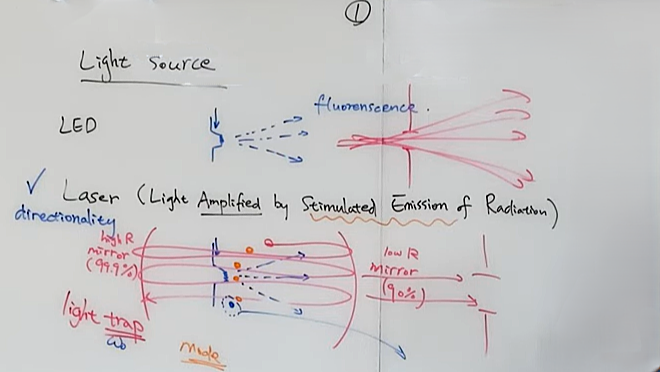 ①
Light Source
fluorenscence.
LED
✓ Laser (Light Amplified by Stimulated Emission of Radiation)
directionality
high R
mirror
(99.9%)
low R
mirror
(90%)
light trap
Mode